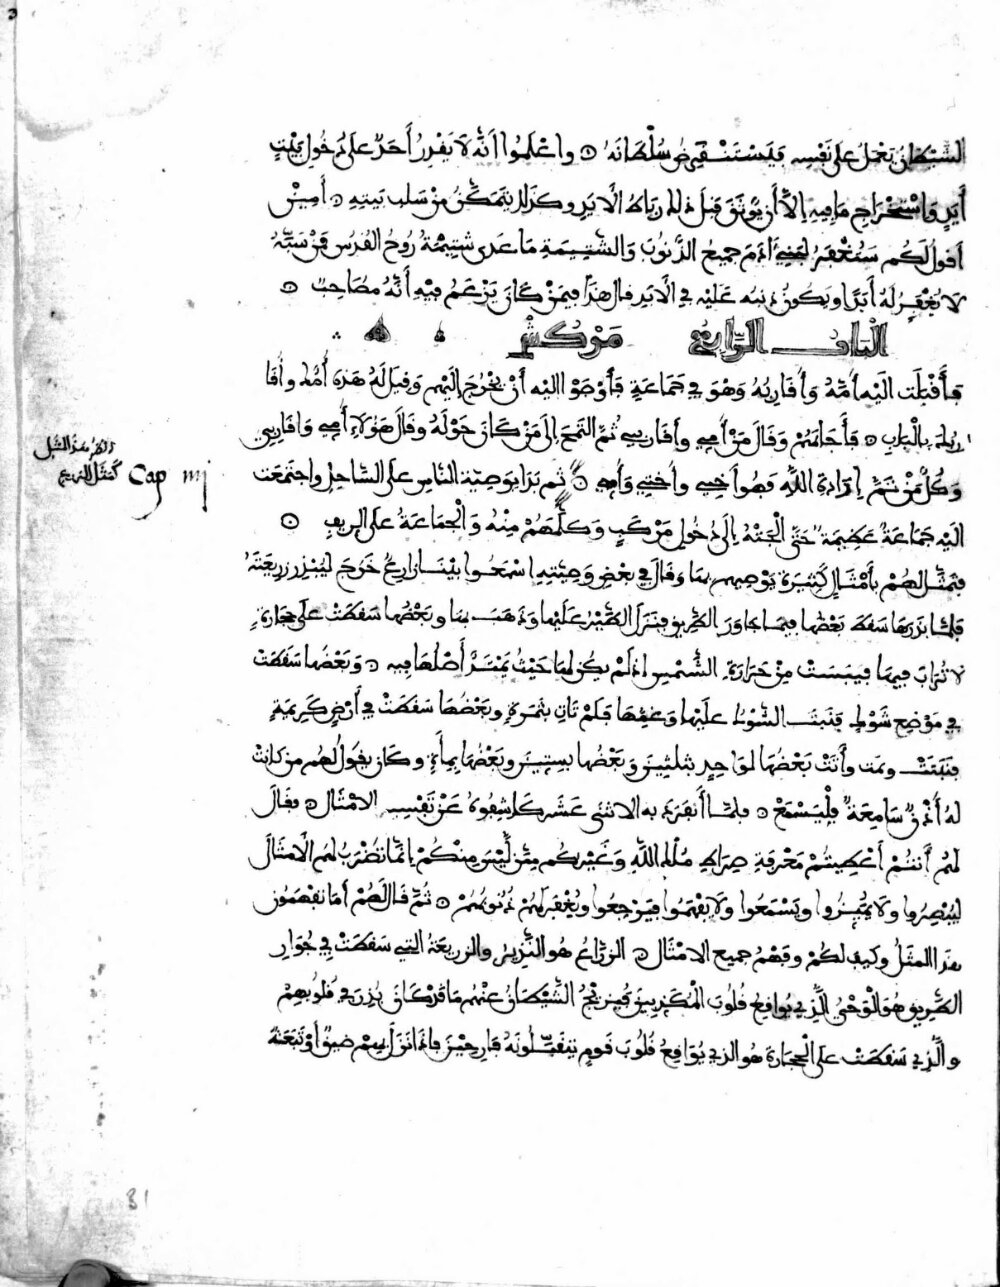 الشيطان يحمل على نفسه فيستنقص سلطانه ۞ واعلموا أنه لا يقدر أحد على دخول بيت
أيد واستخراج ما فيه إلا أن يوثق قبل ذلك رباط الأيد وكذلك يتمكن من سلب بيته ۞ أمين
أقول لكم سيغفر لبني آدم جميع الذنوب والشتيمة ما عدى شتيمة روح القدس فمن سبه
لا يغفر له أبدا ويكون ذنبه عليه في الأبد قال هذا فيمن كان يزعم فيه أنه مصاحب ۞
الباب الرابع مركش
فأقبلت إليه أمه وأقاربه وهو في جماعة فأوحوا إليه أن يخرج إليهم وقيل له هذه أمك وأقا
ربك بالباب ۞ فأجابهم وقال من أمي وأقاربي ثم التمح إلى من كان حوله وقال هؤلاء أمي وأقاربي
وكل من تمم إرادة الله فهو أخي وأختي وأمي ۞ ثم بدا يوصية الناس على الساحل واجتمعت
Cap iiij
إليه جماعة عظيمة حتى ألجته إلى دخول مركب وكلمهم منه والجماعة على الريف ۞
فمثل لهم بأمثال كثيرة يوصيهم بها وقال في بعض وصيته اسمعوا بينا زارع خرج ليبذر زريعته
فلما بذرها سقط بعضها فيما جاور الطريق فنزل الطير عليها وذهب بها وبعضها سقطت على حجارة
لا تراب فيها فيبست من حرارة الشمس إذ لم يكن لها حيث يمتد أصلها فيه ۞ وبعضها سقطت
في موضع شوك فنبت الشوك عليها وغمها فلم تأت بثمرة وبعضها سقطت في أرض كريمة
فنبتت ونمت وأتت بعضها لواحد بثلثين وبعضها بستين وبعضها بمأة وكان يقول لهم من كانت
له أذن سامعة فليسمع ۞ فلما انفرد به الاثني عشر كاشفوه عن تفسير الامثال ۞ فقال
لهم أنتم أعطيتم معرفة صراط ملك الله وغيركم ممن ليس منكم إنما تضرب لهم الأمثال
ليبصروا ولا يميزوا ويسمعوا ولا يفهموا فيرجعوا ويغفر لهم ذنوبهم ۞ ثم قال لهم أما تفهمون
هذا المثل وكيف لكم وفهم جميع الامثال ۞ الزراع هو النذير والزريعة التي سقطت في جوار
الطريق هو الوحي الذي يوافق قلوب المكذبين فينزع الشيطان عنهم ما قد كان بذر في قلوبهم
والذي سقطت على الحجارة هو الذي يوافق قلوب قوم يتقبلونه فارحين فإذا نزل بهم ضيق أو تبعته
81